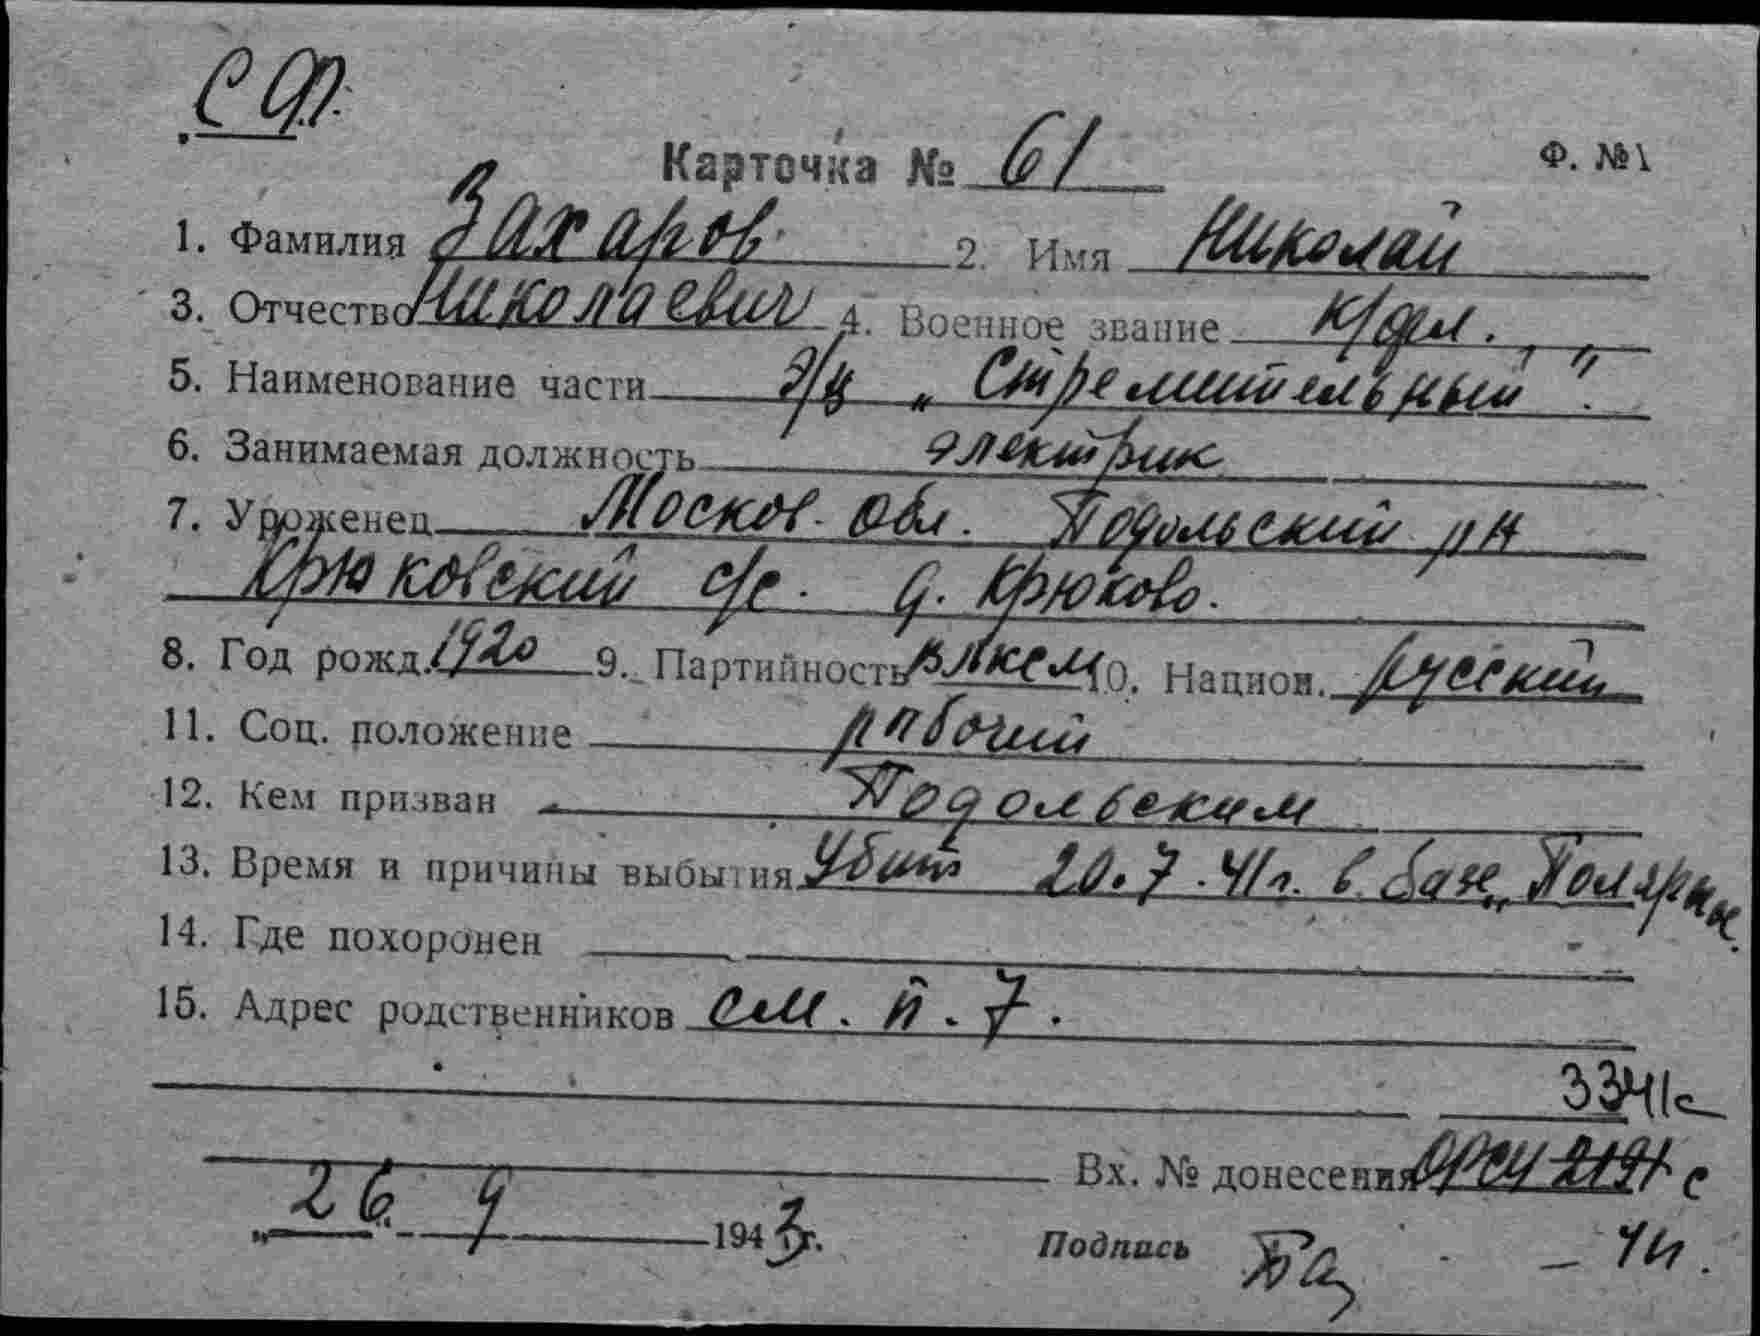 С Ф.
Карточка № 61 Ф. №1
1. Фамилия Захаров 2. Имя Николай
3. Отчество Николаевич 4. Военное звание к/фл.
5. Наименование части э/м „Стремительный".
6. Занимаемая должность электрик
7. Уроженец Москов. обл. Подольский рн
Крюковский с/с. д. Крюково.
8. Год рожд. 1920 9. Партийность ВЛКСМ 10. Национ. русский
11. Соц. положение рабочий
12. Кем призван Подольским
13. Время и причины выбытия Убит 20.7.41г. в базе „Полярное.
14. Где похоронен
15. Адрес родственников см. п. 7.
Вх. № донесения с
„26 9 1943г.
Подпись